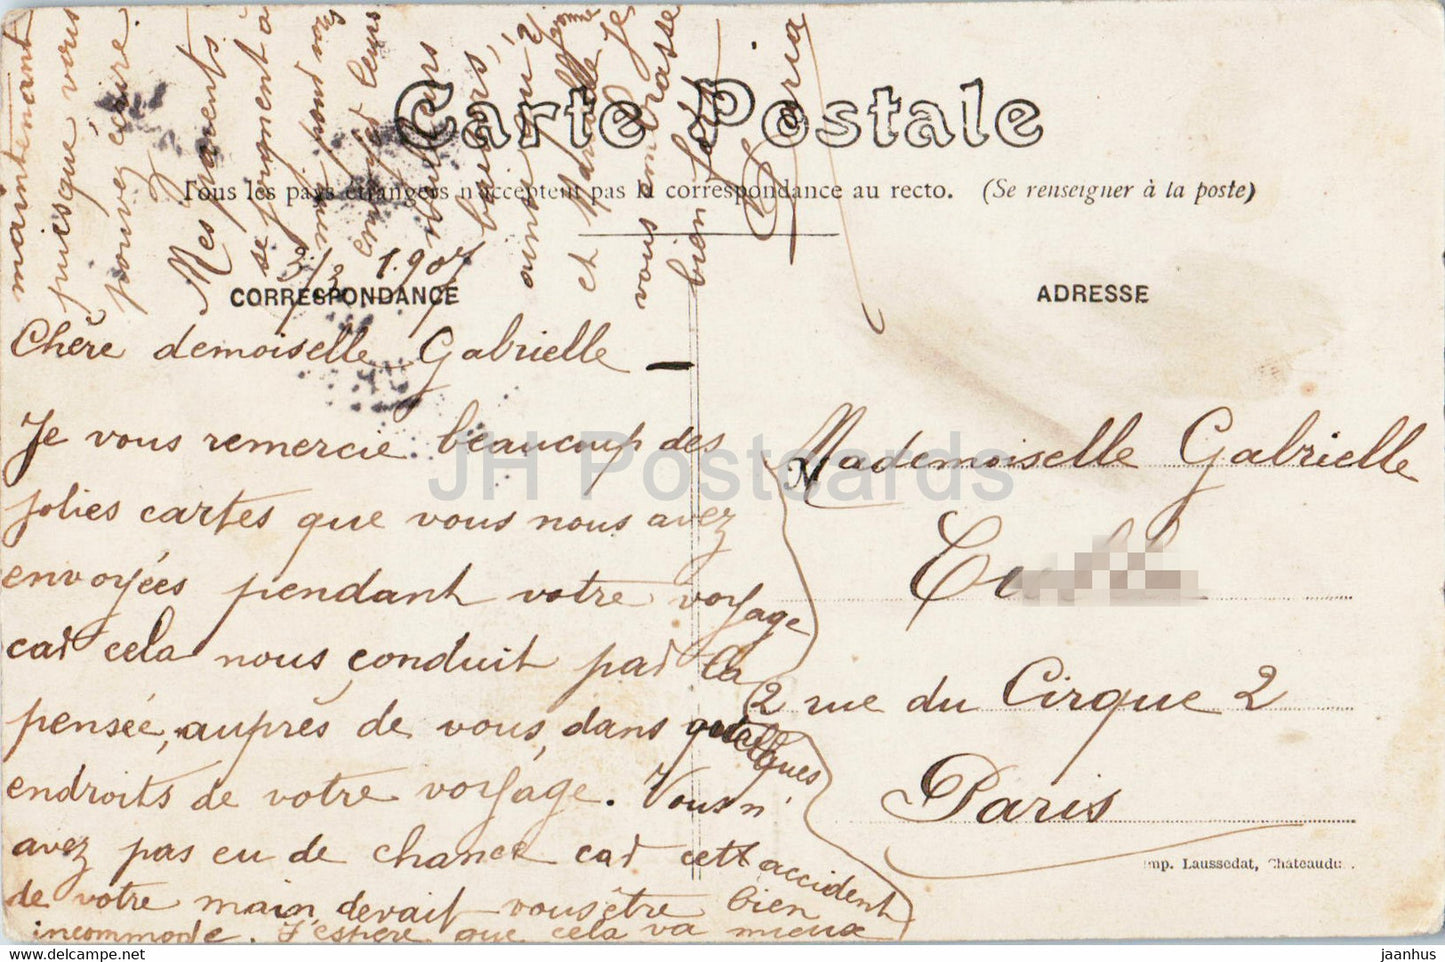 Carte Postale
Tous les pays étrangers n'acceptent pas la correspondance au recto. (Se renseigner à la poste)
CORRESPONDANCE
ADRESSE
3/3 1907
Chère demoiselle Gabrielle
Je vous remercie beaucoup des
jolies cartes que vous nous avez
envoyées pendant votre voyage
car cela nous conduit par la
pensée, auprès de vous, dans quelques
endroits de votre voyage. Vous n'
avez pas eu de chance car cett accident
de votre main devait vous être bien
incommode. J'espère que cela va mieux
maintenant
puisque vous
pouvez écrire.
Mes parents
se joignent à
moi pour vous
envoyer leurs
meilleurs
ainsi qu'à Yvonne
et Marcelle Je
vous embrasse
bien fort
Maria
Mademoiselle Gabrielle
2 rue du Cirque 2
Paris
Imp. Laussedat, Chateaudun.
JH Postcards
www.delcampe.net
jaanhus